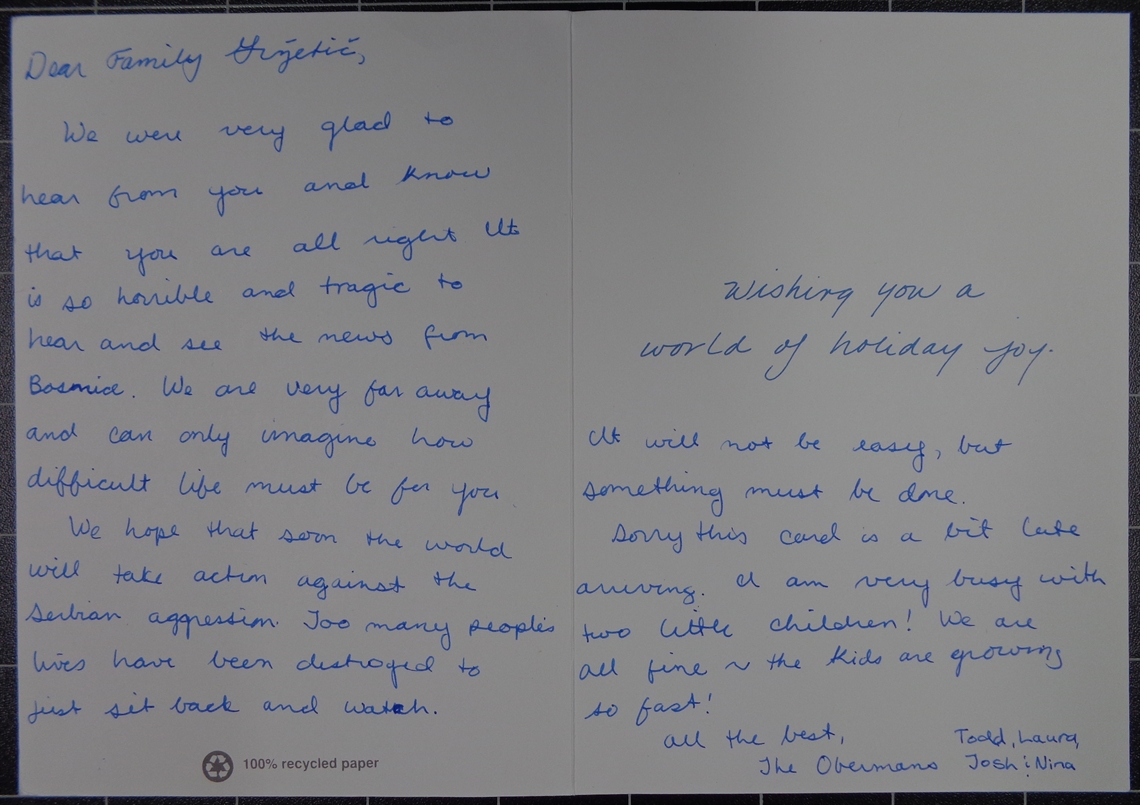 Dear Family
We were very glad to
hear from you and know
that you are all right It
is so horrible and tragic to
hear and see the news from
Bosnia. We are very far away
and can only imagine how
difficult life must be for you.
We hope that soon the world
will take action against the
Serbian aggression. Too many people's
lives have been destroyed to
just sit back and watch.
100% recycled paper
Wishing you a
world of holiday joy.
It will not be easy, but
something must be done.
Sorry this card is a bit late
arriving. I am very busy with
two little children! We are
all fine ~ the kids are growing
so fast!
all the best,
The Obermans
Todd, Laura,
Josh & Nina